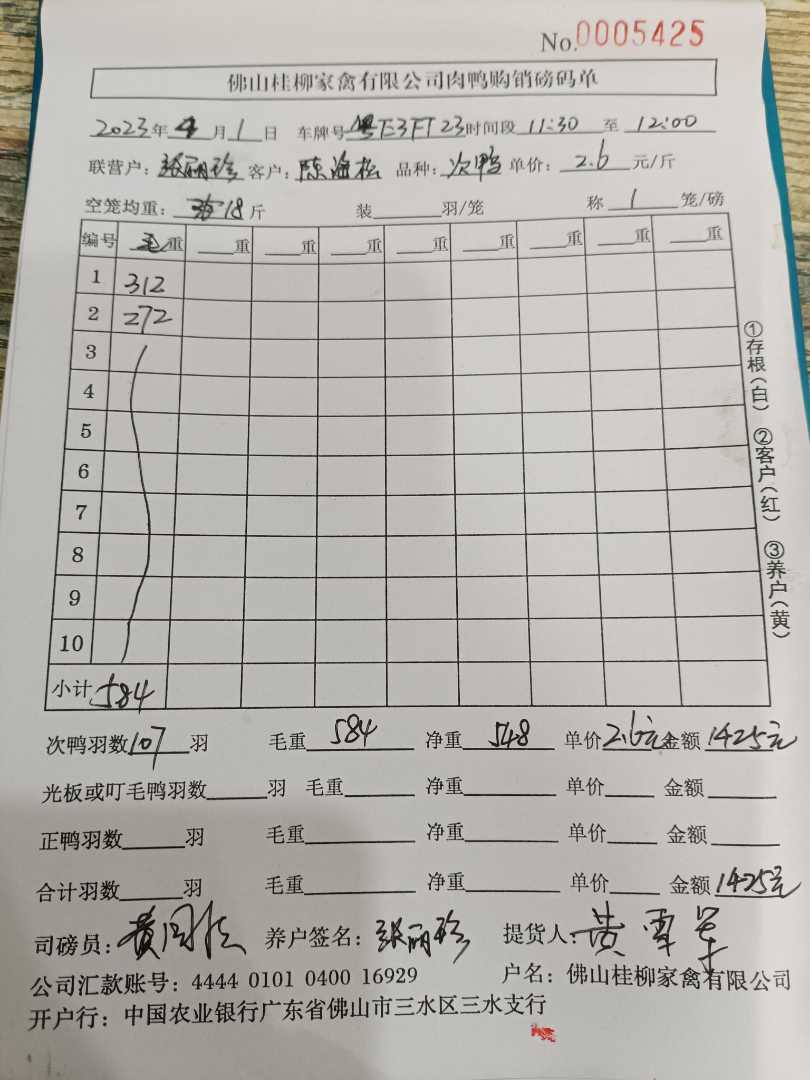 No.0005425
佛山桂柳家禽有限公司肉鸭购销磅码单
2023年4月1日 车牌号粤E3FT23时间段 11:30 至 12:00
联营户：张丽珍 客户：陈海松 品种：次鸭 单价：2.6元/斤
空笼均重：18斤 装羽/笼 称1笼/磅
编号 毛重 重 重 重 重 重 重 重 重
1 312
2 272
3
4
5
6
7
8
9
10
小计 584
次鸭羽数107羽 毛重584 净重548 单价2.6元 金额1425元
光板或叮毛鸭羽数羽 毛重 净重 单价 金额
正鸭羽数羽 毛重 净重 单价 金额
合计羽数羽 毛重 净重 单价 金额1425元
司磅员： 养户签名：张丽珍 提货人：黄
公司汇款账号：4444 0101 0400 16929 户名：佛山桂柳家禽有限公司
开户行：中国农业银行广东省佛山市三水区三水支行
①存根（白） ②客户（红） ③养户（黄）